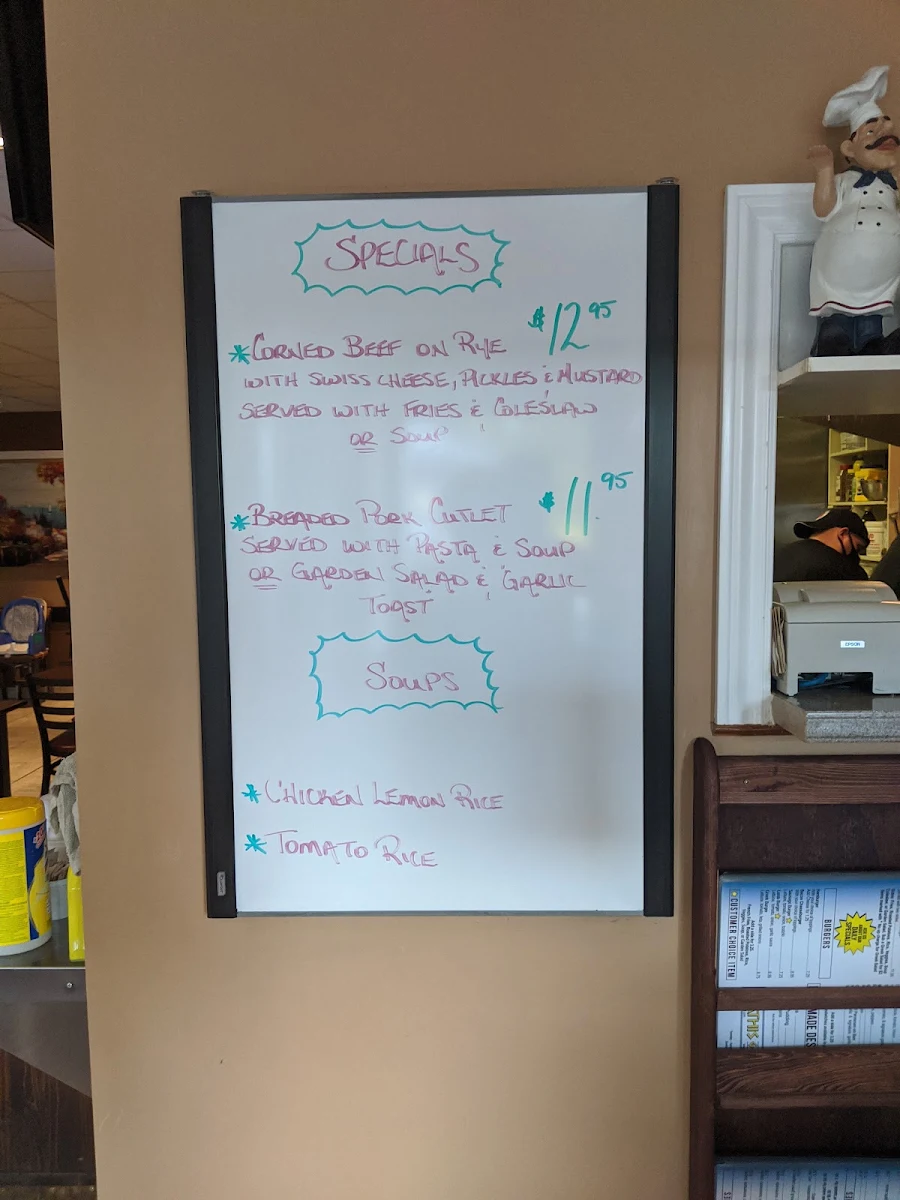 SPECIALS
$12.95
*CORNED BEEF ON RYE
WITH SWISS CHEESE, PICKLES & MUSTARD
SERVED WITH FRIES & COLESLAW
OR SOUP
$11.95
*BREADED PORK CUTLET
SERVED WITH PASTA & SOUP
OR GARDEN SALAD & GARLIC
TOAST
SOUPS
*CHICKEN LEMON RICE
*TOMATO RICE
EPSON
BURGERS
DAILY
SPECIALS
CUSTOMER CHOICE ITEM